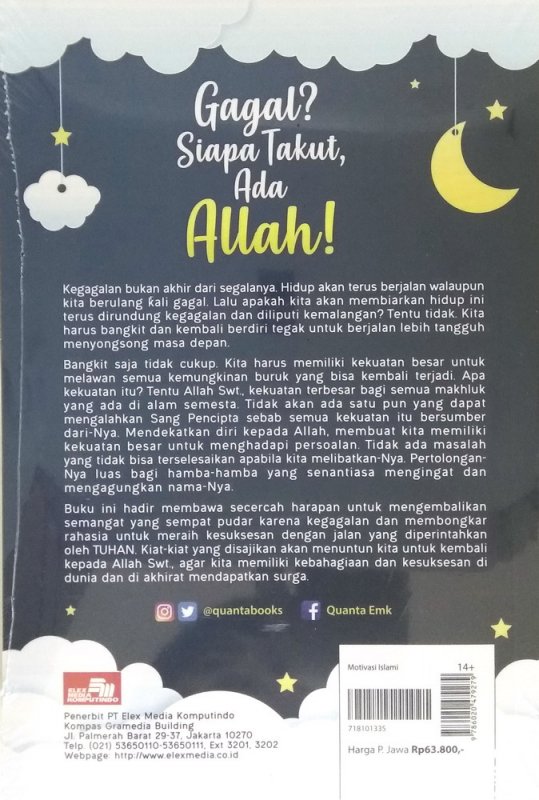 Gagal?
Siapa Takut,
Ada
Allah!
Kegagalan bukan akhir dari segalanya. Hidup akan terus berjalan walaupun
kita berulang kali gagal. Lalu apakah kita akan membiarkan hidup ini
terus dirundung kegagalan dan diliputi kemalangan? Tentu tidak. Kita
harus bangkit dan kembali berdiri tegak untuk berjalan lebih tangguh
menyongsong masa depan.
Bangkit saja tidak cukup. Kita harus memiliki kekuatan besar untuk
melawan semua kemungkinan buruk yang bisa kembali terjadi. Apa
kekuatan itu? Tentu Allah Swt., kekuatan terbesar bagi semua makhluk
yang ada di alam semesta. Tidak akan ada satu pun yang dapat
mengalahkan Sang Pencipta sebab semua kekuatan itu bersumber
dari-Nya. Mendekatkan diri kepada Allah, membuat kita memiliki
kekuatan besar untuk menghadapi persoalan. Tidak ada masalah
yang tidak bisa terselesaikan apabila kita melibatkan-Nya. Pertolongan-
Nya luas bagi hamba-hamba yang senantiasa mengingat dan
mengagungkan nama-Nya.
Buku ini hadir membawa secercah harapan untuk mengembalikan
semangat yang sempat pudar karena kegagalan dan membongkar
rahasia untuk meraih kesuksesan dengan jalan yang diperintahkan
oleh TUHAN. Kiat-kiat yang disajikan akan menuntun kita untuk kembali
kepada Allah Swt., agar kita memiliki kebahagiaan dan kesuksesan di
dunia dan di akhirat mendapatkan surga.
@quantabooks Quanta Emk
ELEX
MEDIA
KOMPUTINDO
Penerbit PT Elex Media Komputindo
Kompas Gramedia Building
Jl. Palmerah Barat 29-37, Jakarta 10270
Telp. (021) 53650110-53650111, Ext 3201, 3202
Webpage: http://www.elexmedia.co.id
Motivasi Islami 14+
718101335
9786020479279
Harga P. Jawa Rp63.800,-